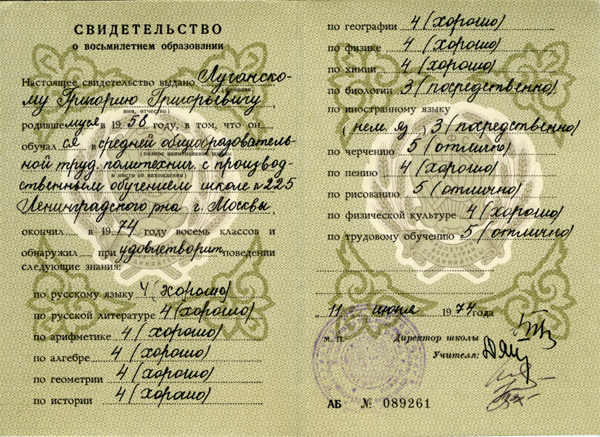 СВИДЕТЕЛЬСТВО
о восьмилетнем образовании
Настоящее свидетельство выдано Луганско-
му Григорию Григорьевичу
имя, отчество
родившемуся в 1958 году, в том, что он
обучался в средней общеобразователь-
ной труд. политехнич. с производ-
ственным обучением школе №225
Ленинградского р-на г. Москвы
окончил в 1974 году восемь классов и
обнаружил при удовлетворит поведении
следующие знания:
по русскому языку 4 (хорошо)
по русской литературе 4 (хорошо)
по арифметике 4 (хорошо)
по алгебре 4 (хорошо)
по геометрии 4 (хорошо)
по истории 4 (хорошо)
по географии 4 (хорошо)
по физике 4 (хорошо)
по химии 4 (хорошо)
по биологии 3 (посредственно)
по иностранному языку
(нем. яз.) 3 (посредственно)
по черчению 5 (отлично)
по пению 4 (хорошо)
по рисованию 5 (отлично)
по физической культуре 4 (хорошо)
по трудовому обучению 5 (отлично)
11 июня 1974 года
М. П. Директор школы
Учителя:
АБ № 089261